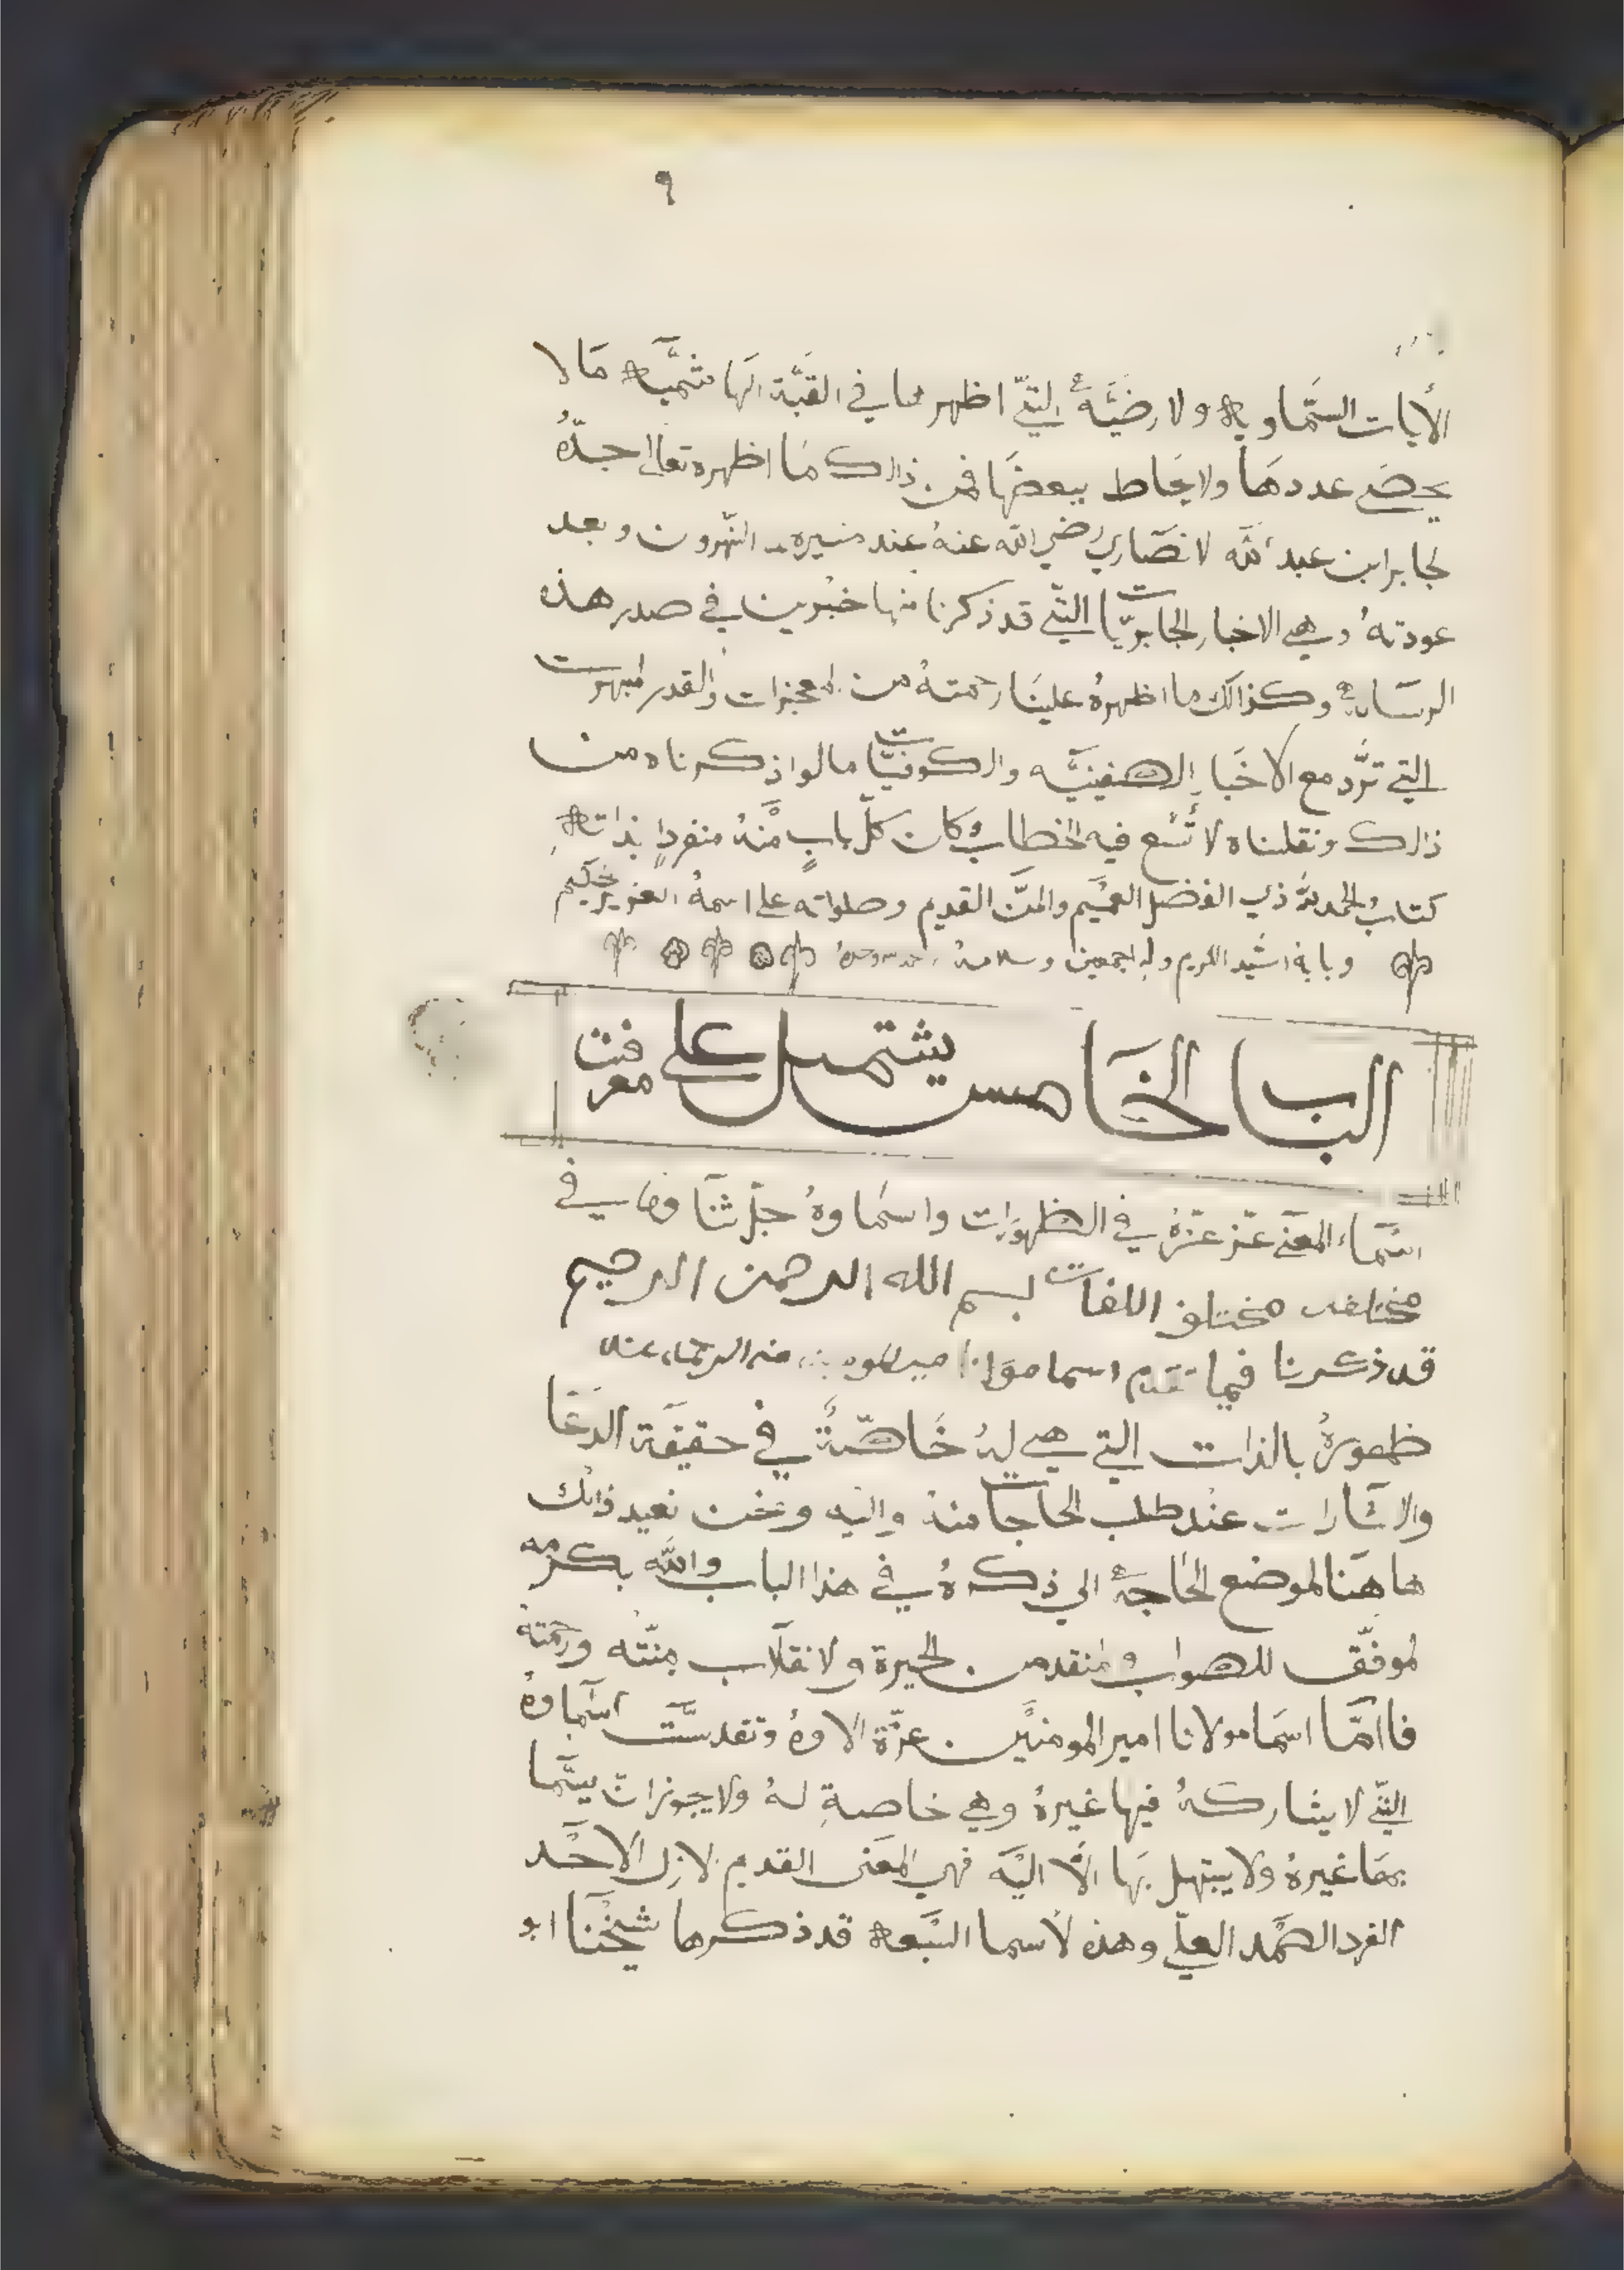 ٩
الأيات السَّماويه ولارضيَّة التيّ اظهرها في القبَّة الهاشميَّه مَا لا
يحصَى عددهَا ولايحَاط ببعضهَا فمن ذالك مَا اظهره تعالى جدّهُ
لجابر ابن عبد الله لانصَاري رضي الله عنهُ عند مسيره النهرون وبعد
عودتهُ وهي الاخبار الجابريّات التيّ قد ذكرنا منها خبرين في صدر هذه
الرسَاله وكذالك ما اظهرهُ علينَا رحمتهُ من المعجزات والقدر المبهرت
التي تردّ مع الاخبَار الصفينيَّه والكوفيَّات مالوا ذكرناه من
ذالك ونقلناه لاتّسع فيه الخطاب وكان كلّ بابٍ منَّهُ منفردٍ بذاته
كتابُ الحمد لله ذي الفضل العميَم والمنَّ القديم وصلواته على اسمهُ العزيز الحكيم
وبابه السّيد الكريم واله اجمعين وسلامهُ
الباب الخَامس يشتمل على معرفت
اسّمَاء المعنَى عزّ عزّهُ في الظهوَرات واسَماوهُ جلّ ثنَاوها في
مختلف اللغات بسم الله الرحمن الرحيم
قد ذكرنا فيما تقدم اسما مولانا
ظهورهُ بالذات التي هي لهُ خَاصّةً في حقيقَة الدعَا
والاشَارات عنْد طلب الحَاجات منهُ واليه ونحن نعيد ذالك
هاهَنا لموضع الحَاجة الي ذكرهُ في هذا الباب والله بكرمه
لموفّق للصواب والمنقد من الحيرة ولانقلَاب بمنّته ورحمتهُ
فاامَّا اسمَا مولانا امير المومنيَن عزّة الاوهُ وتقدسَّت اسمَاوهُ
التيّ لا يشاركهُ فيها غيرهُ وهي خاصةِ لهُ ولايجوز ان يسّمَا
بهَا غيرهُ ولا يبتهل بهَا الَّا اليَه فهي المعَنى القديم لازل الاحَد
الفرد الصَّمد العليّ وهذه لاسما السَّبعه قد ذكرها شيخَنا ابو